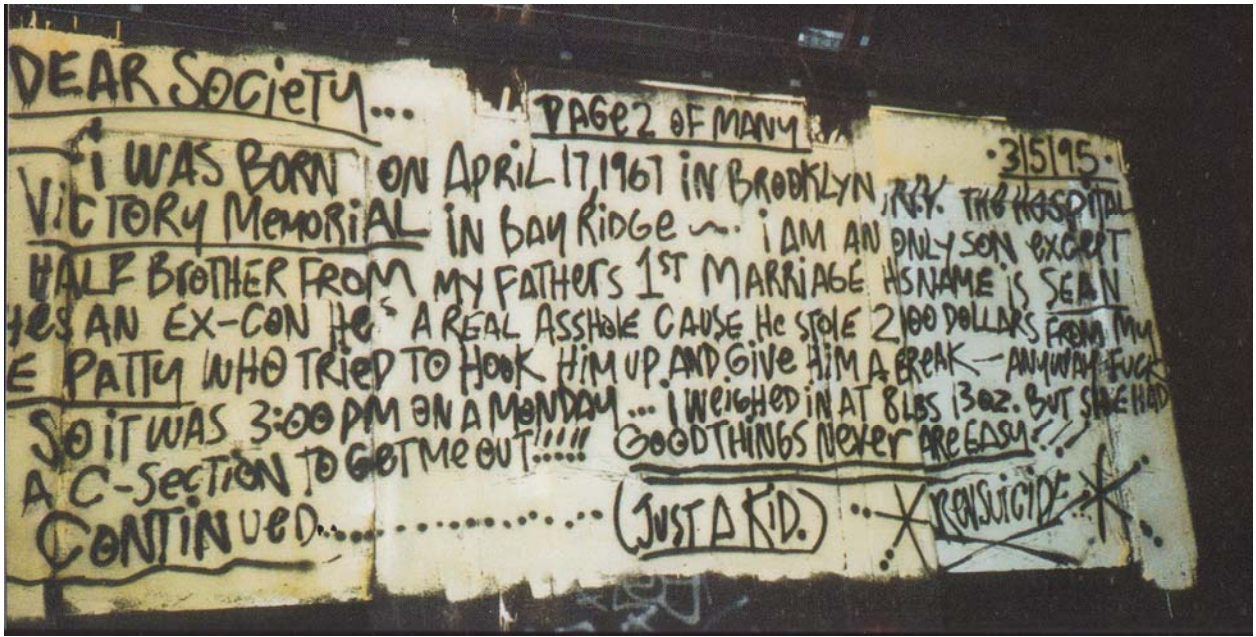 DEAR SOCIETY...
PAGE 2 OF MANY
·3/5/95·
I WAS BORN ON APRIL 17, 1967 IN BROOKLYN, N.Y. THE HOSPITAL
VICTORY MEMORIAL IN BAY RIDGE ~. I AM AN ONLY SON EXCEPT
HALF BROTHER FROM MY FATHERS 1ST MARRIAGE HS NAME IS SEAN
HES AN EX-CON HE'S A REAL ASSHOLE CAUSE HE STOLE 2100 DOLLARS FROM MY
E PATTY WHO TRIED TO HOOK HIM UP AND GIVE HIM A BREAK — ANYWAY FUCK
SO IT WAS 3:00 PM ON A MONDAY... I WEIGHED IN AT 8 LBS 13 OZ. BUT SHE HAD
A C-SECTION TO GET ME OUT!!!!! GOOD THINGS NEVER ARE EASY!!!
CONTINUED................ (JUST A KID.) REVSUICIDE